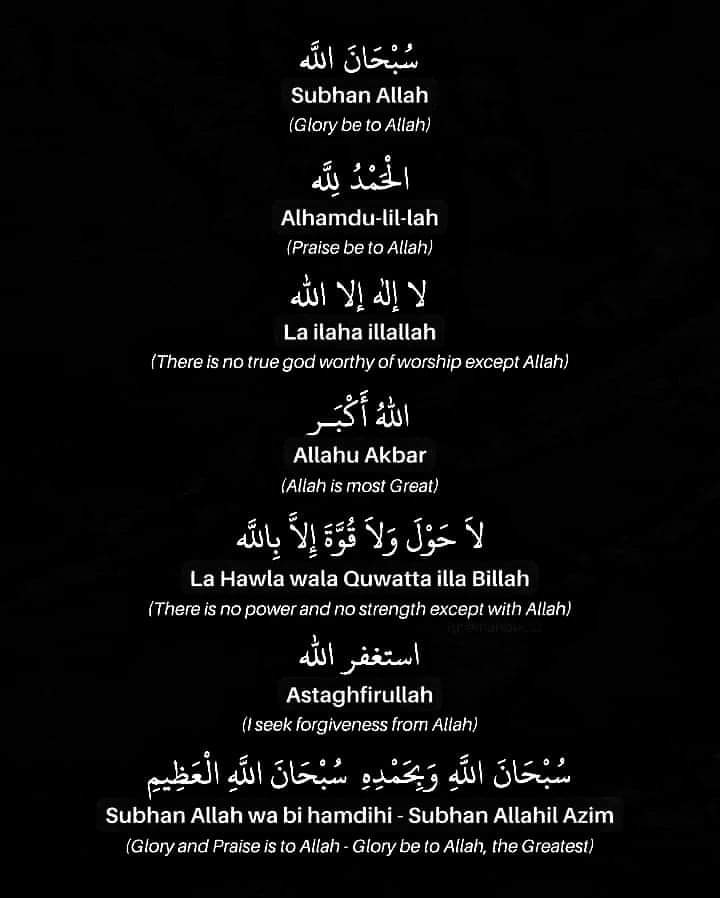 سُبْحَانَ اللَّه
Subhan Allah
(Glory be to Allah)
الْحَمْدُ لِلَّه
Alhamdu-lil-lah
(Praise be to Allah)
لا إله إلا الله
La ilaha illallah
(There is no true god worthy of worship except Allah)
اللهُ أَكْبَــر
Allahu Akbar
(Allah is most Great)
لاَ حَوْلَ وَلاَ قُوَّةَ إِلاَّ بِاللَّه
La Hawla wala Quwatta illa Billah
(There is no power and no strength except with Allah)
استغفر الله
Astaghfirullah
(I seek forgiveness from Allah)
سُبْحَانَ اللَّهِ وَبِحَمْدِهِ سُبْحَانَ اللَّهِ الْعَظِيمِ
Subhan Allah wa bi hamdihi - Subhan Allahil Azim
(Glory and Praise is to Allah - Glory be to Allah, the Greatest)